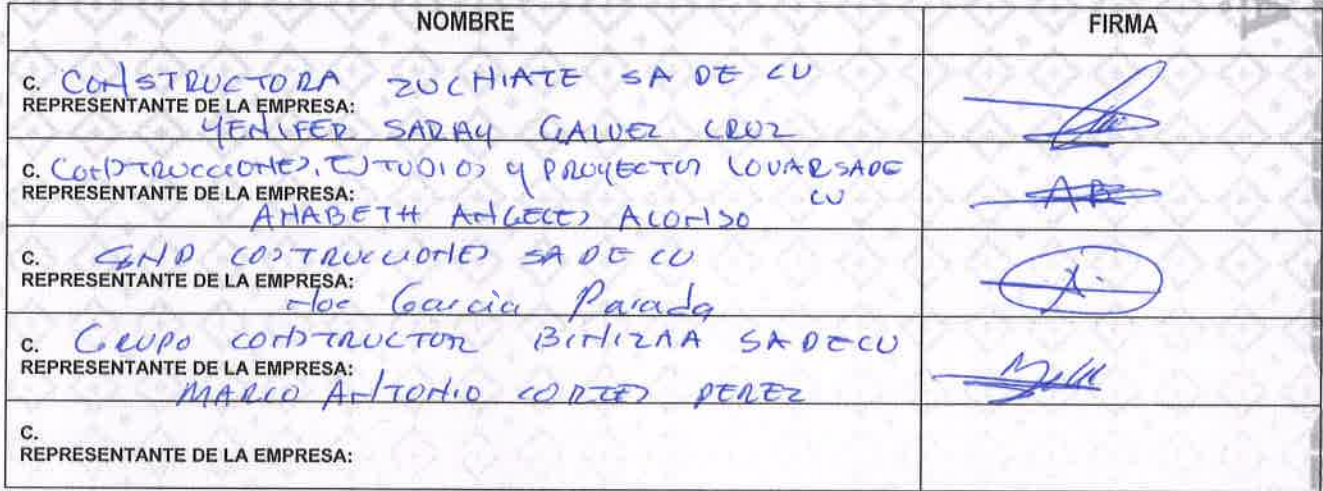 NOMBRE FIRMA
C. CONSTRUCTORA ZUCHIATE SA DE CV
REPRESENTANTE DE LA EMPRESA:
YENIFER SARAY GALVEZ CRUZ
C. CONSTRUCCIONES, ESTUDIOS Y PROYECTOS LOVAR SA DE
CV
REPRESENTANTE DE LA EMPRESA:
ANABETH ANGELES ALONSO
AB
C. COSTRUCCIONES SA DE CV
REPRESENTANTE DE LA EMPRESA:
Noe Garcia Parada
C. GRUPO CONSTRUCTOR BINIZAA SA DE CV
REPRESENTANTE DE LA EMPRESA:
MARCO ANTONIO CORTES PEREZ
C.
REPRESENTANTE DE LA EMPRESA: